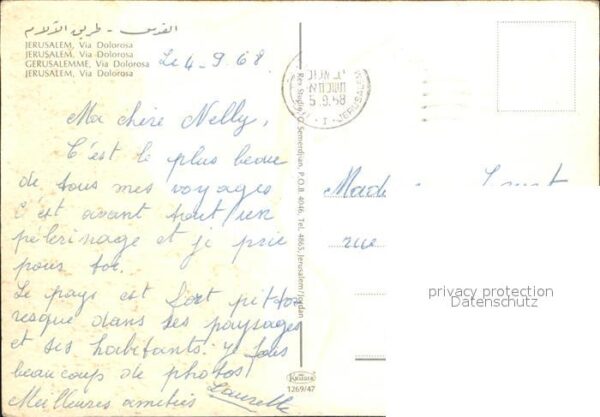 القدس - طريق الآلام
JERUSALEM, Via Dolorosa
JERUSALEM, Via Dolorosa
GERUSALEMME, Via Dolorosa
JERUSALEM, Via Dolorosa
Le 4_9_68.
Ma chère Nelly,
C'est le plus beau
de tous mes voyages
C'est avant tout un
pélerinage et je prie
pour toi.
Le pays est fort pitto
resque dans ses paysages
et ses habitants. Je fais
beaucoup de photos
Meilleures amitiés
Rex Studio, O. Semerdjian, P.O.B. 4046, Tel. 4865, Jerusalem/Jordan
5.9.68
JERUSALEM
rue
privacy protection
Datenschutz
Krüger
1269/47